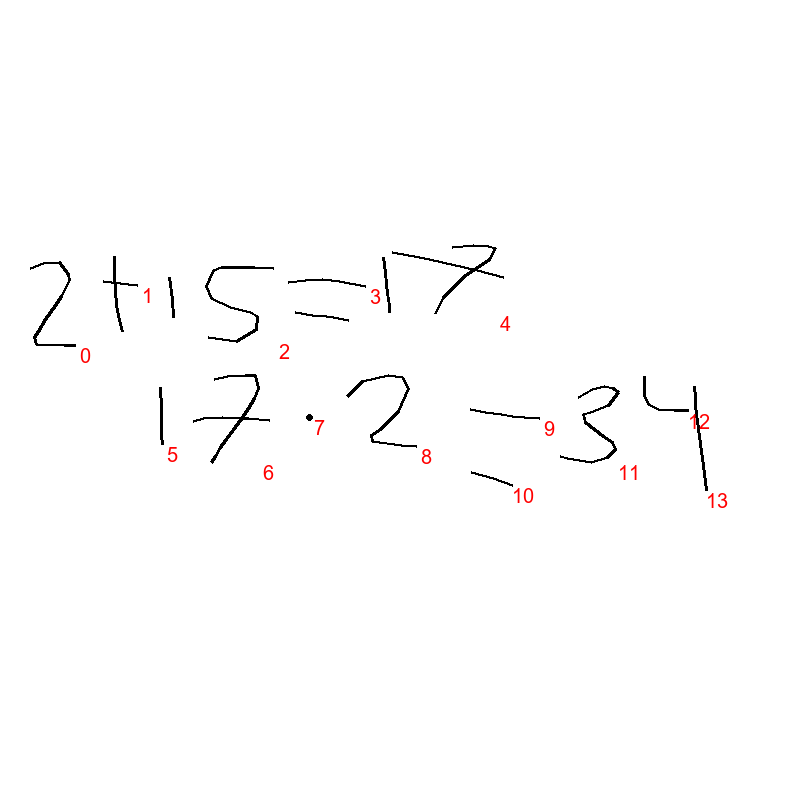 2+15=17
17·2=34
0 1 2 3 4
5 6 7 8 9 10 11 12 13